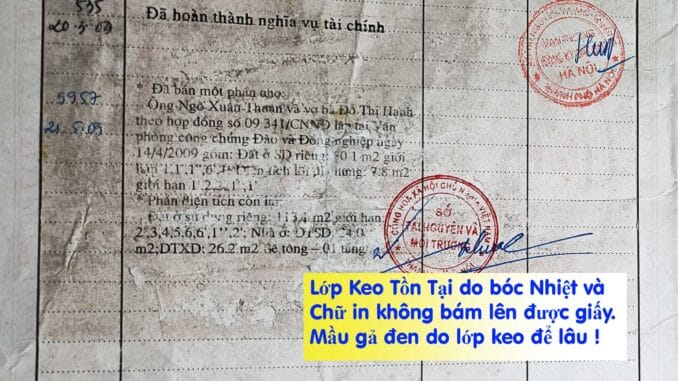 535
20-5-09
Đã hoàn thành nghĩa vụ tài chính
HÀ NỘI
5957
21.5.09
* Đã bán một phần cho:
Ông Ngô Xuân Thuan và vợ bà Đỗ Thị Hạnh
theo hợp đồng số 09.341/CNNĐ lập tại Văn
phòng công chứng Đào và Đồng nghiệp ngày
14/4/2009 gồm: Đất ở SD riêng: m2 giới
1',1",6', tích lối đi chung: 7.8 m2
giới hạn 1',2,2',1",1'
* Phần diện tích còn lại:
Đất ở sử dụng riêng: m2 giới hạn
2',3,4,5,6,6',1",2'; Nhà ở: DTSD:
m2;DTXD: 26.2 m2 Bê tông – 01 tầng
CỘNG HOÀ XÃ HỘI CHỦ NGHĨA VIỆT NAM
SỞ
TÀI NGUYÊN VÀ
MÔI TRƯỜNG
Lớp Keo Tồn Tại do bóc Nhiệt và
Chữ in không bám lên được giấy.
Mầu gả đen do lớp keo để lâu !